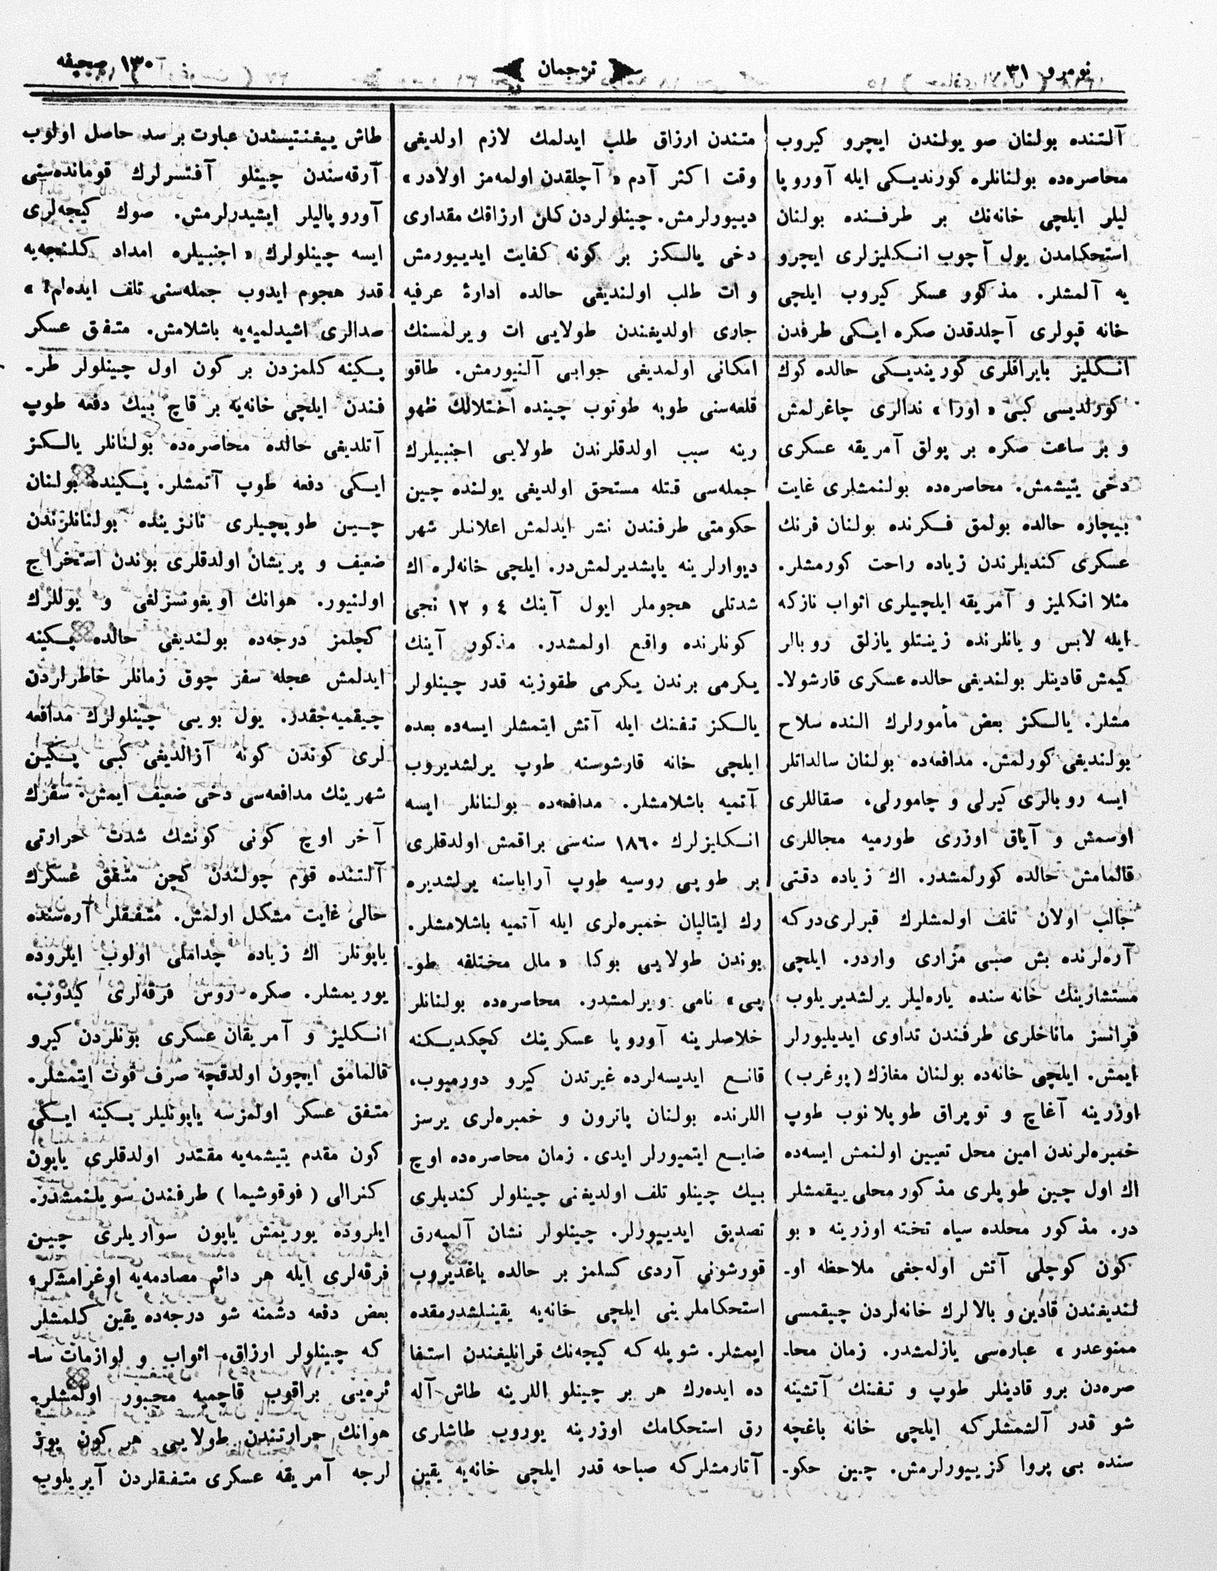 نومرو ٣١
ترجمان
١٣٠ صحیفه
آلتنده بولنان صو یولندن ایچرو کیروب
محاصره‌ده بولنانلره کورندیکی ایله آوروپا
لیلر ایلچی خانه‌نك بر طرفنده بولنان
استحکامدن یول آچوب انکلیزلری ایچرو
یه آلمشلر. مذکور عسکر کیروب ایلچی
خانه قپولری آچلدقدن صکره ایکی طرفدن
انکلیز بایراقلری کوریندیکی حالده کوك
کورلدیسی کبی « اورا » ندالری چاغرلمش
و بر ساعت صکره بر پولق آمریقه عسکری
دخی یتیشمش. محاصره‌ده بولنمشلری غایت
بیچاره حالده بولمق فکرنده بولنان فرنك
عسکری کندیلرندن زیاده راحت کورمشلر.
مثلا انکلیز و آمریقه ایلچیلری اثواب نازکه
ایله لابس و یانلرنده زینتلو یازلق روبالر
کیمش قادینلر بولندیغی حالده عسکری قارشولا-
مشلر. یالکز بعض مأمورلرك النده سلاح
بولندیغی کورلمش. مدافعه‌ده بولنان سالداتلر
ایسه روبالری کیرلی و چامورلی، صقاللری
اوسمش و آیاق اوزری طورمیه مجاللری
قالمامش حالده کورلمشدر. اك زیاده دقتی
جالب اولان تلف اولمشلرك قبرلری‌درکه
آره‌لرنده بش صبی مزاری واردر. ایلچی
مستشارینك خانه سنده یاره‌لیلر یرلشدیریلوب
فرانسز ماناخلری طرفندن تداوی ایدیلیورلر
ایمش. ایلچی خانه‌ده بولنان مغازك (پوغرب)
اوزرینه آغاچ و توپراق طوپلانوب طوپ
خمبره‌لرندن امین محل تعیین اولنمش ایسه‌ده
اك اول چین طوپلری مذکور محلی ییقمشلر
در. مذکور محلده سیاه تخته اوزرینه « بو
کون کوچلی آتش اوله‌جغی ملاحظه او-
لندیغندن قادین و بالالرك خانه‌لردن چیقمسی
ممنوعدر » عباره‌سی یازلمشدر. زمان محا-
صره‌دن برو قادینلر طوپ و تفنك آتشینه
شو قدر آلشمشلرکه ایلچی خانه باغچه
سنده بی پروا کزییورلرمش. چین حکو-
متندن ارزاق طلب ایدلمك لازم اولدیغی
وقت اکثر آدم « آچلقدن اولمه‌مز اولادر »
دییورلرمش. چینلولردن کلن ارزاقك مقداری
دخی یالکز بر کونه کفایت ایدییورمش
و ات طلب اولندیغی حالده ادارۀ عرفیه
جاری اولدیغندن طولایی ات ویرلمسنك
امکانی اولمدیغی جوابی آلنیورمش. طاقو
قلعه‌سنی طوپه طوتوب چینده اختلالك ظهو
رینه سبب اولدقلرندن طولایی اجنبیلرك
جمله‌سی قتله مستحق اولدیغی یولنده چین
حکومتی طرفندن نشر ایدلمش اعلانلر شهر
دیوارلرینه یاپشدیرلمش‌در. ایلچی خانه‌لره اك
شدتلی هجوملر ایول آینك ٤ و ١٢ نجی
کونلرنده واقع اولمشدر. مذکور آینك
یکرمی برندن یکرمی طقوزینه قدر چینلولر
یالکز تفنك ایله آتش ایتمشلر ایسه‌ده بعده
ایلچی خانه قارشوسنه طوپ یرلشدیروب
آتمیه باشلامشلر. مدافعه‌ده بولنانلر ایسه
انکلیزلرك ١٨٦٠ سنه‌سی براقمش اولدقلری
بر طوپی روسیه طوپ آراباسنه یرلشدیره
رك ایتالیان خمبره‌لری ایله آتمیه باشلامشلر.
بوندن طولایی بوکا « مال مختلفه طو-
پی » نامی ویرلمشدر. محاصره‌ده بولنانلر
خلاصلرینه آوروپا عسکرینك کچکدیکنه
قانع ایدیسه‌لرده غیرتدن کیرو دورمیوب،
اللرنده بولنان پاترون و خمبره‌لری یرسز
ضایع ایتمیورلر ایدی. زمان محاصره‌ده اوچ
بیك چینلو تلف اولدیغنی چینلولر کندیلری
تصدیق ایدییورلر. چینلولر نشان آلمیه‌رق
قورشونی آردی کسلمز بر حالده یاغدیروب
استحکاملرینی ایلچی خانه‌یه یقینلشدرمقده
ایمشلر. شویله که کیجه‌نك قراڭلیغندن استفا
ده ایده‌رك هر بر چینلو اللرینه طاش آله
رق استحکامك اوزرینه یوروب طاشلری
آتارمشلرکه صباحه قدر ایلچی خانه‌یه یقین
طاش ییغنتیسندن عبارت بر سد حاصل اولوب
آرقه‌سندن چینلو آفتسرلرك قومانده‌سنی
آوروپالیلر ایشیدرلرمش. صوك کیجه‌لری
ایسه چینلولرك « اجنبیلره امداد کلنجه‌یه
قدر هجوم ایدوب جمله‌سنی تلف ایده‌لم! »
صدالری اشیدلمیه‌یه باشلامش. متفق عسکر
پکینه کلمزدن بر کون اول چینلولر طر-
فندن ایلچی خانه‌یه بر قاچ بیك دفعه طوپ
آتلدیغی حالده محاصره‌ده بولنانلر یالکز
ایکی دفعه طوپ آتمشلر. پکینده بولنان
چین طوپچیلری تانزینده بولنانلرندن
ضعیف و پریشان اولدقلری بوندن استخراج
اولنیور. هوانك اویغونسزلغی و یوللرك
کچلمز درجه‌ده بولندیغی حالده پکینه
ایدلمش عجله سفر چوق زمانلر خاطرلردن
چیقمیه‌جقدر. یول بویی چینلولرك مدافعه
لری کوندن کونه آزالدیغی کبی پکین
شهرینك مدافعه‌سی دخی ضعیف ایمش. سفرك
آخر اوچ کونی کونشك شدت حرارتی
آلتنده قوم چولندن کچن متفق عسکرك
حالی غایت مشکل اولمش. متفقلر آره‌سنده
یاپونلر اك زیاده چداملی اولوب ایلروده
یوریمشلر. صکره روس فرقه‌لری کیدوب،
انکلیز و آمریقان عسکری بونلردن کیرو
قالمامق ایچون اولدقچه صرف قوت ایتمشلر.
متفق عسکر اولمزسه یاپونلیلر پکینه ایکی
کون مقدم یتیشمه‌یه مقتدر اولدقلری یاپون
کنرالی ( فوقوشیما ) طرفندن سویلنمشدر.
ایلروده یوریمش یاپون سواریلری چین
فرقه‌لری ایله هر دائم مصادمه‌یه اوغرامشلر؛
بعض دفعه دشمنه شو درجه‌ده یقین کلمشلر
که چینلولر ارزاق، اثواب و لوازمات سا-
ئره‌یی براقوب قاچمیه مجبور اولمشلر.
هوانك حرارتندن طولایی هر کون یوز
لرجه آمریقه عسکری متفقلردن آیریلوب